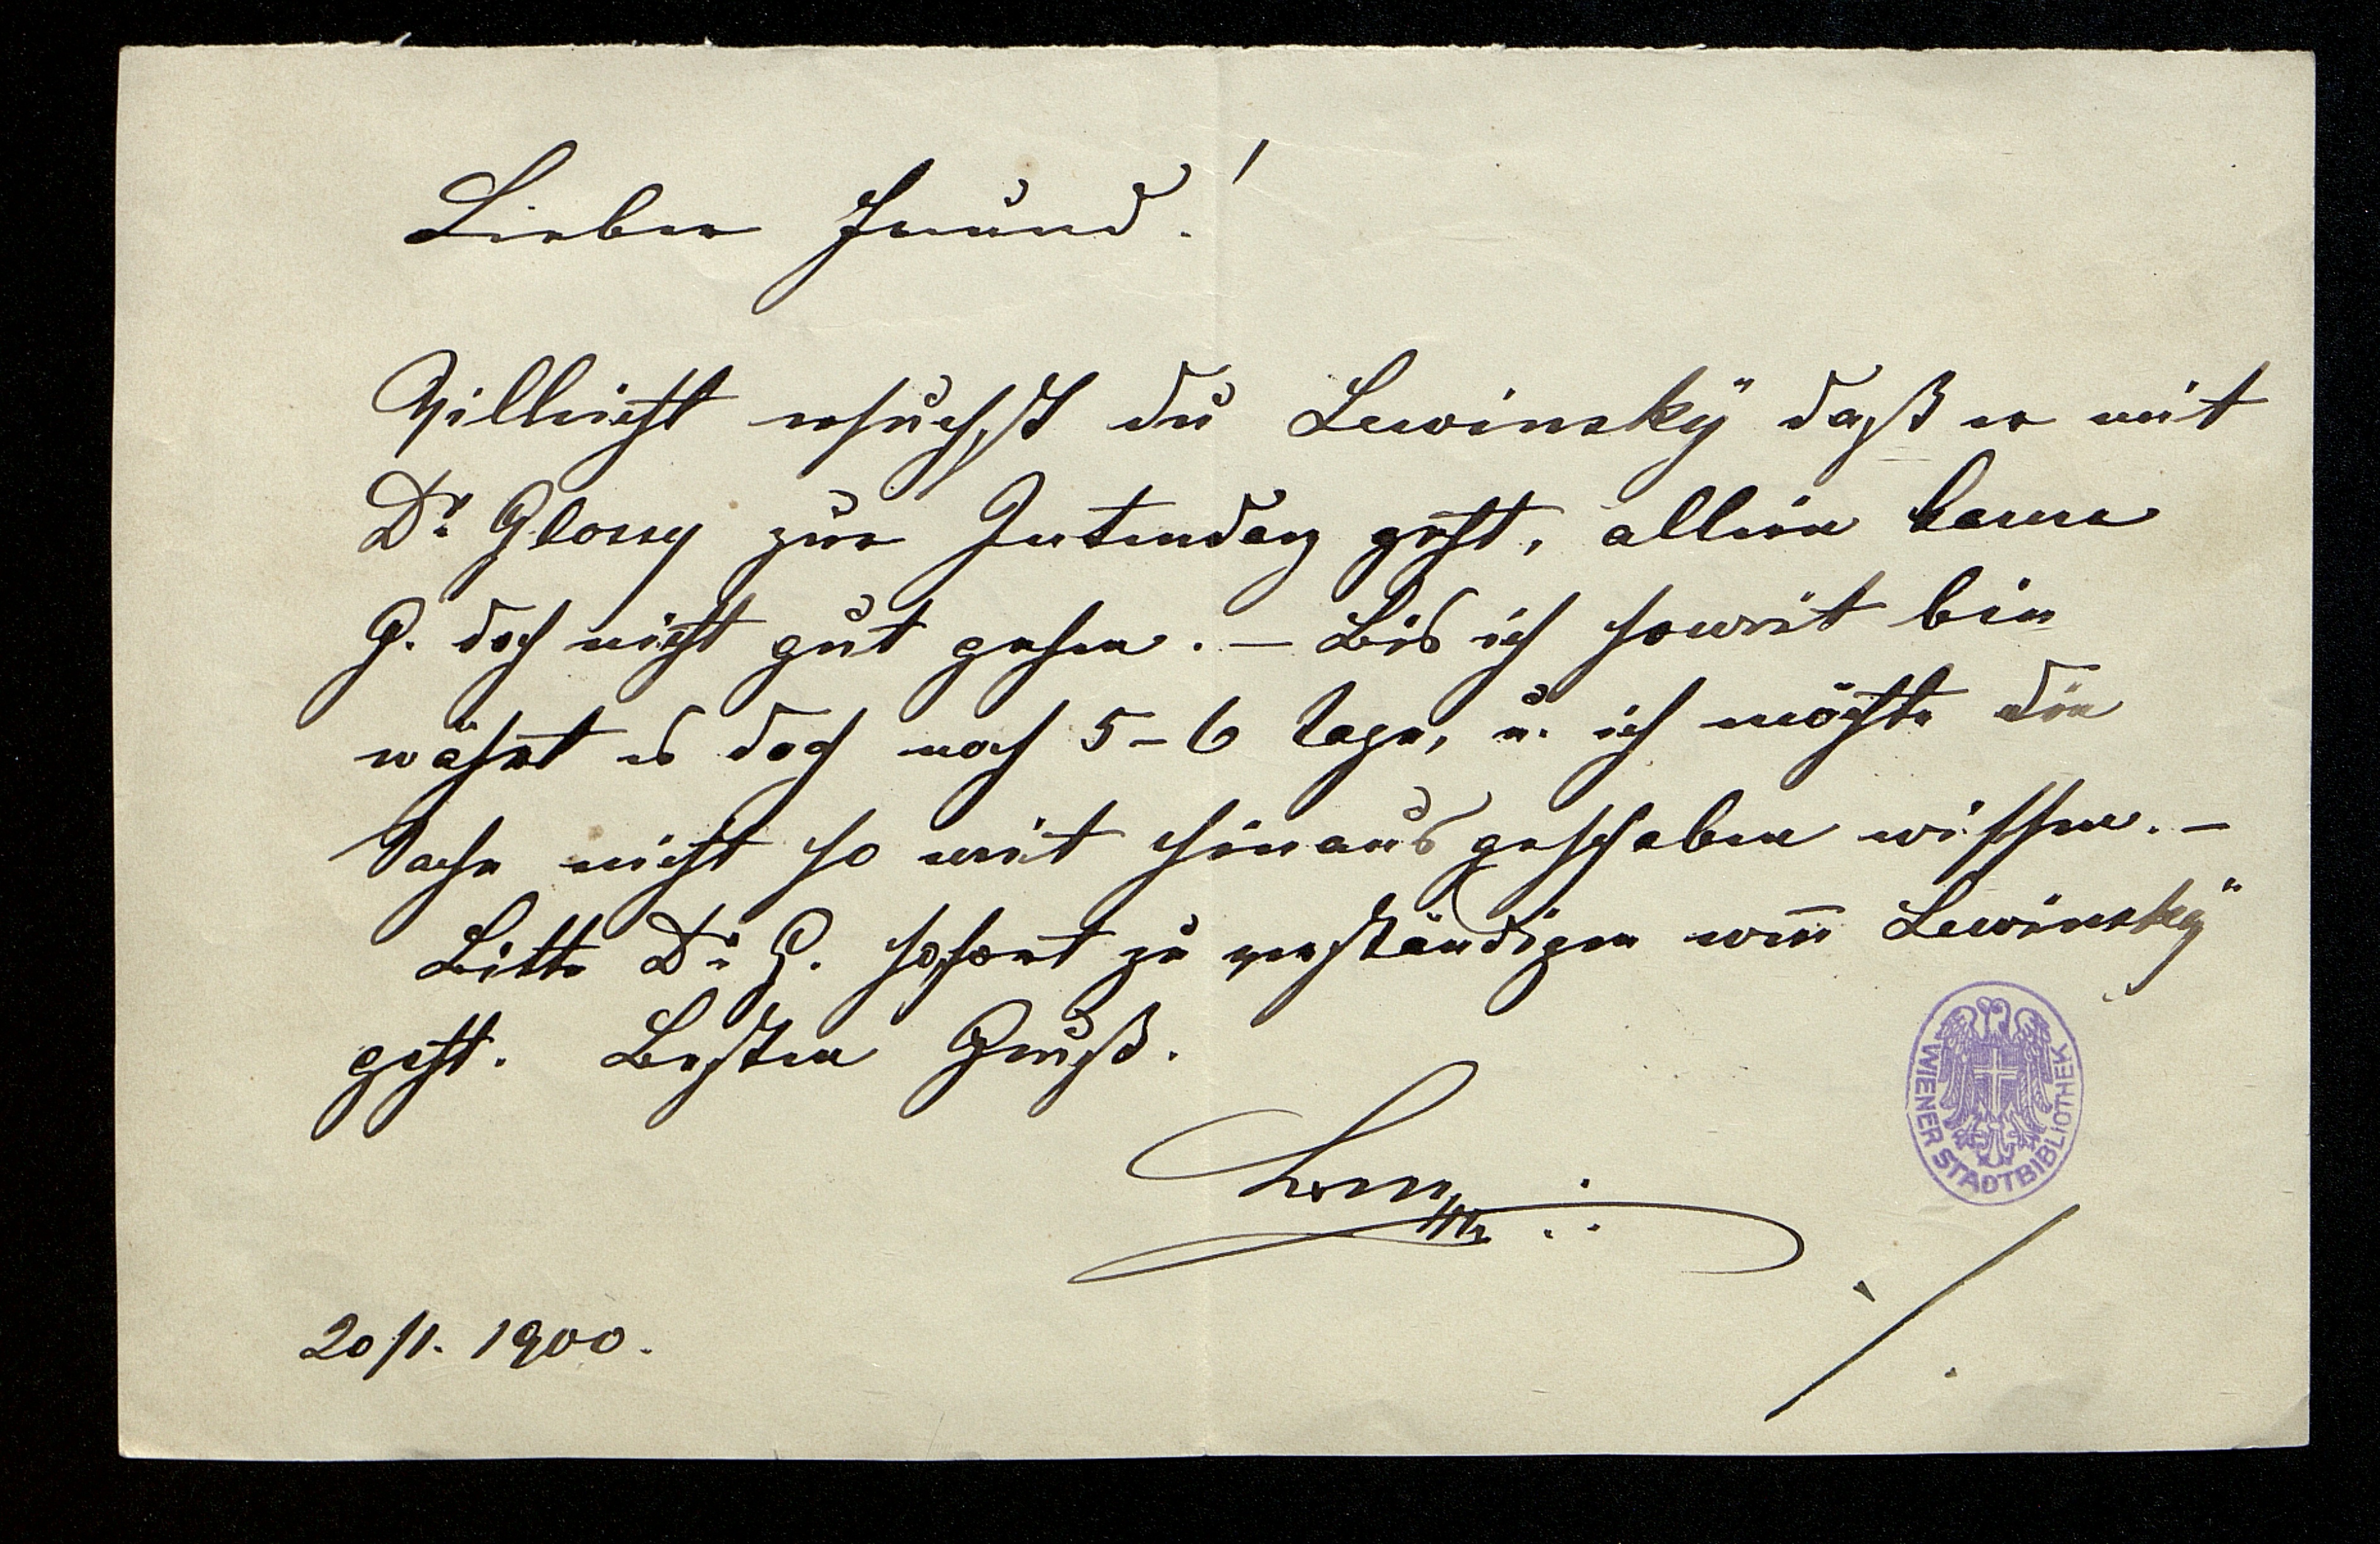 Lieber Freund!
Villeicht ersuchst du Lewinsky daß er mit
Dr Glossy zur Intendanz geht, allein kann
G. doch nicht gut gehen. – Bis ich soweit bin
währt es doch noch 5–6 Tage, u. ich möchte die
Sache nicht so weit hinausgeschoben wissen. –
Bitte Dr G. sofort zu verständigen wen̄ Lewinsky
geht. Besten Gruß.
20/1. 1900.
WIENER STADTBIBLIOTHEK